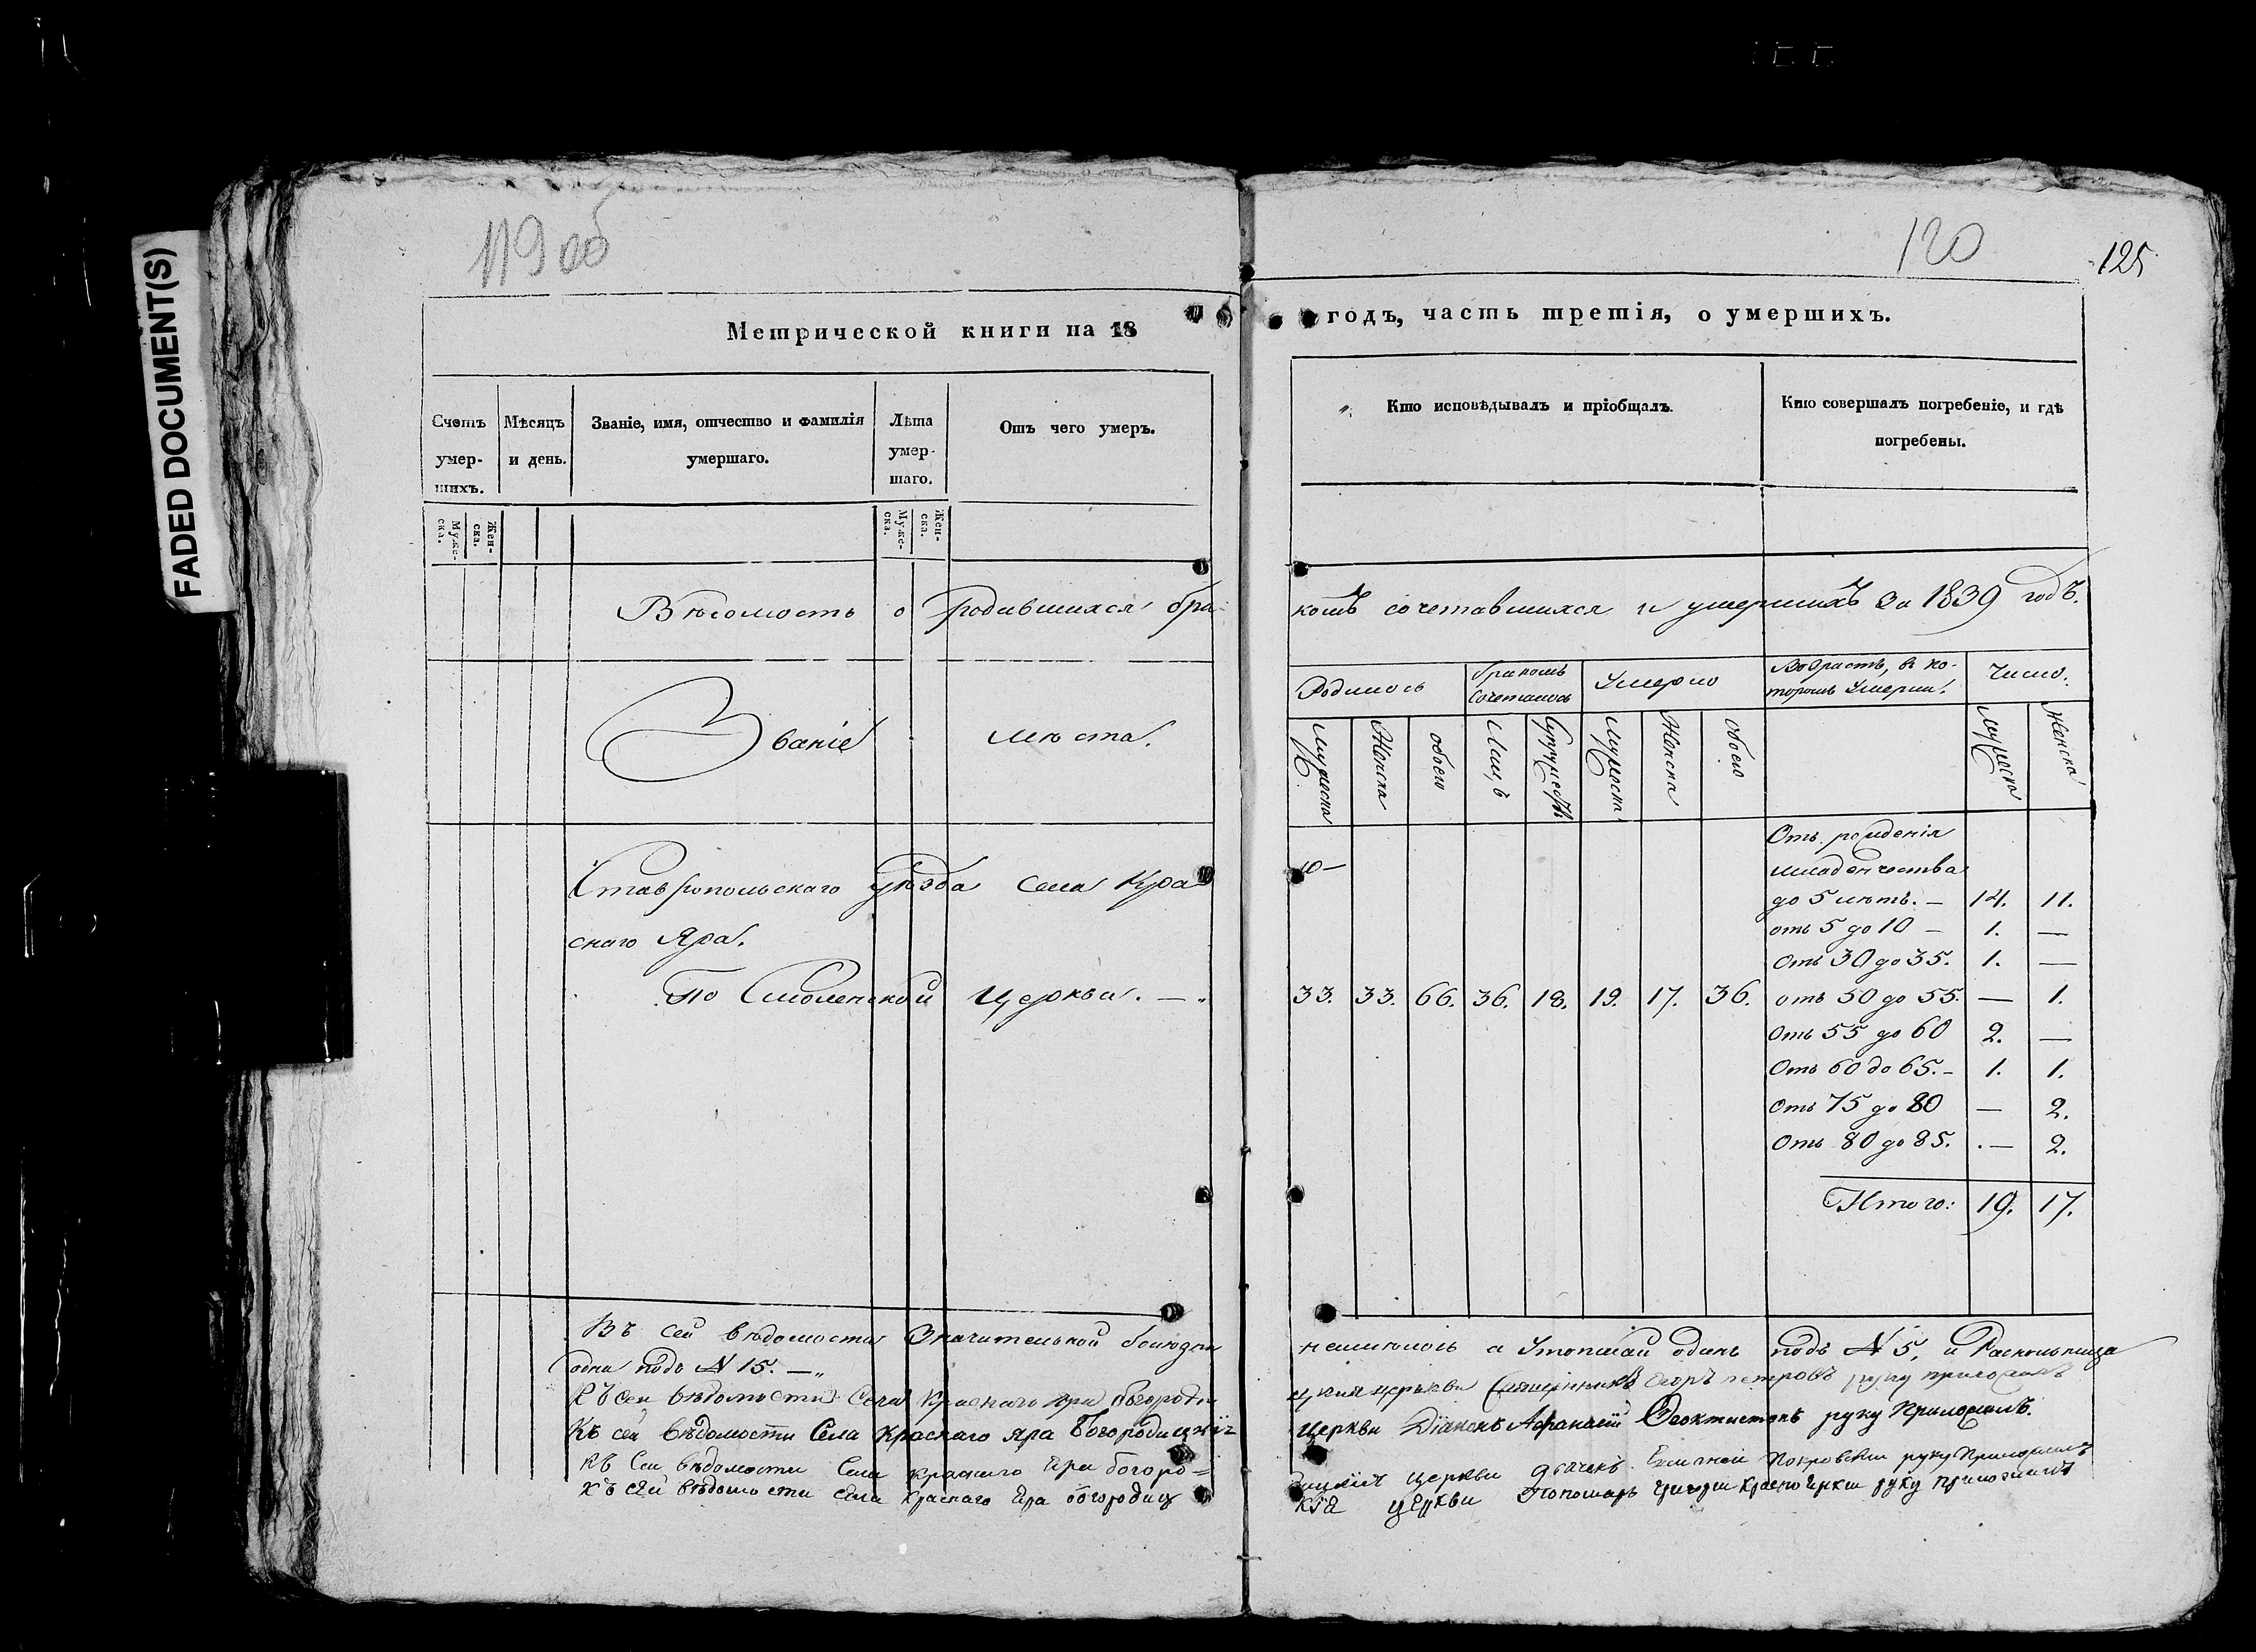 FADED DOCUMENT(S)
119 об
120
125
Метрической книги на 18
годъ, часть третія, о умершихъ.
Счетъ умер-шихъ.
Мѣсяцъ и день.
Званіе, имя, отчество и фамилія умершаго.
Лѣта умер-шаго.
Отъ чего умеръ.
Кто исповѣдывалъ и пріобщалъ.
Кто совершалъ погребеніе, и гдѣ погребены.
Муже-ска.
Жен-ска.
Муже-ска.
Жен-ска.
Вѣдомость о родившихся бра-
комъ сочетавшихся и умершихъ за 1839 годъ.
Званіе мѣста.
Родилось
бракомъ сочеталось
Умерло
Возрастъ, въ ко-
торомъ умерли.
Число.
мужеска
Женска
обоего
Лицъ
Супружествъ
мужеска
Женска
обоего
мужеска
женска
Ставропольскаго уѣзда села Кра
снаго Яра.
По Смоленской Церкви. —
10 —
33. 33. 66. 36. 18. 19. 17. 36.
Отъ рожденія
младенчества
до 5 лѣтъ. — 14. 11.
отъ 5 до 10 — 1. —
Отъ 30 до 35. 1. —
отъ 50 до 55. — 1.
Отъ 55 до 60 2. —
Отъ 60 до 65. – 1. 1.
Отъ 75 до 80 — 2.
Отъ 80 до 85. — 2.
Итого: 19. 17.
Въ сей вѣдомости Значительной болѣзни
неимѣлось а Утопшай одинъ подъ N 5, и Раскольница
одна подъ N 15. —
Къ сей вѣдомости Села Краснаго яра богороди
цкия церькви Священникъ Егоръ петровъ руку приложилъ
Къ сей вѣдомости Села Краснаго яра Богородицкія
Церкви Діаконъ Афанасій Феоктистовъ руку Приложилъ.
Къ Сей вѣдомости Села краснаго Яра богоро=
дицкія церкви дьячекъ Покровски руку Приложилъ
Къ сей вѣдомости села краснаго Яра богородиц
кія церкви Пономарь григори Красноярки руку приложилъ